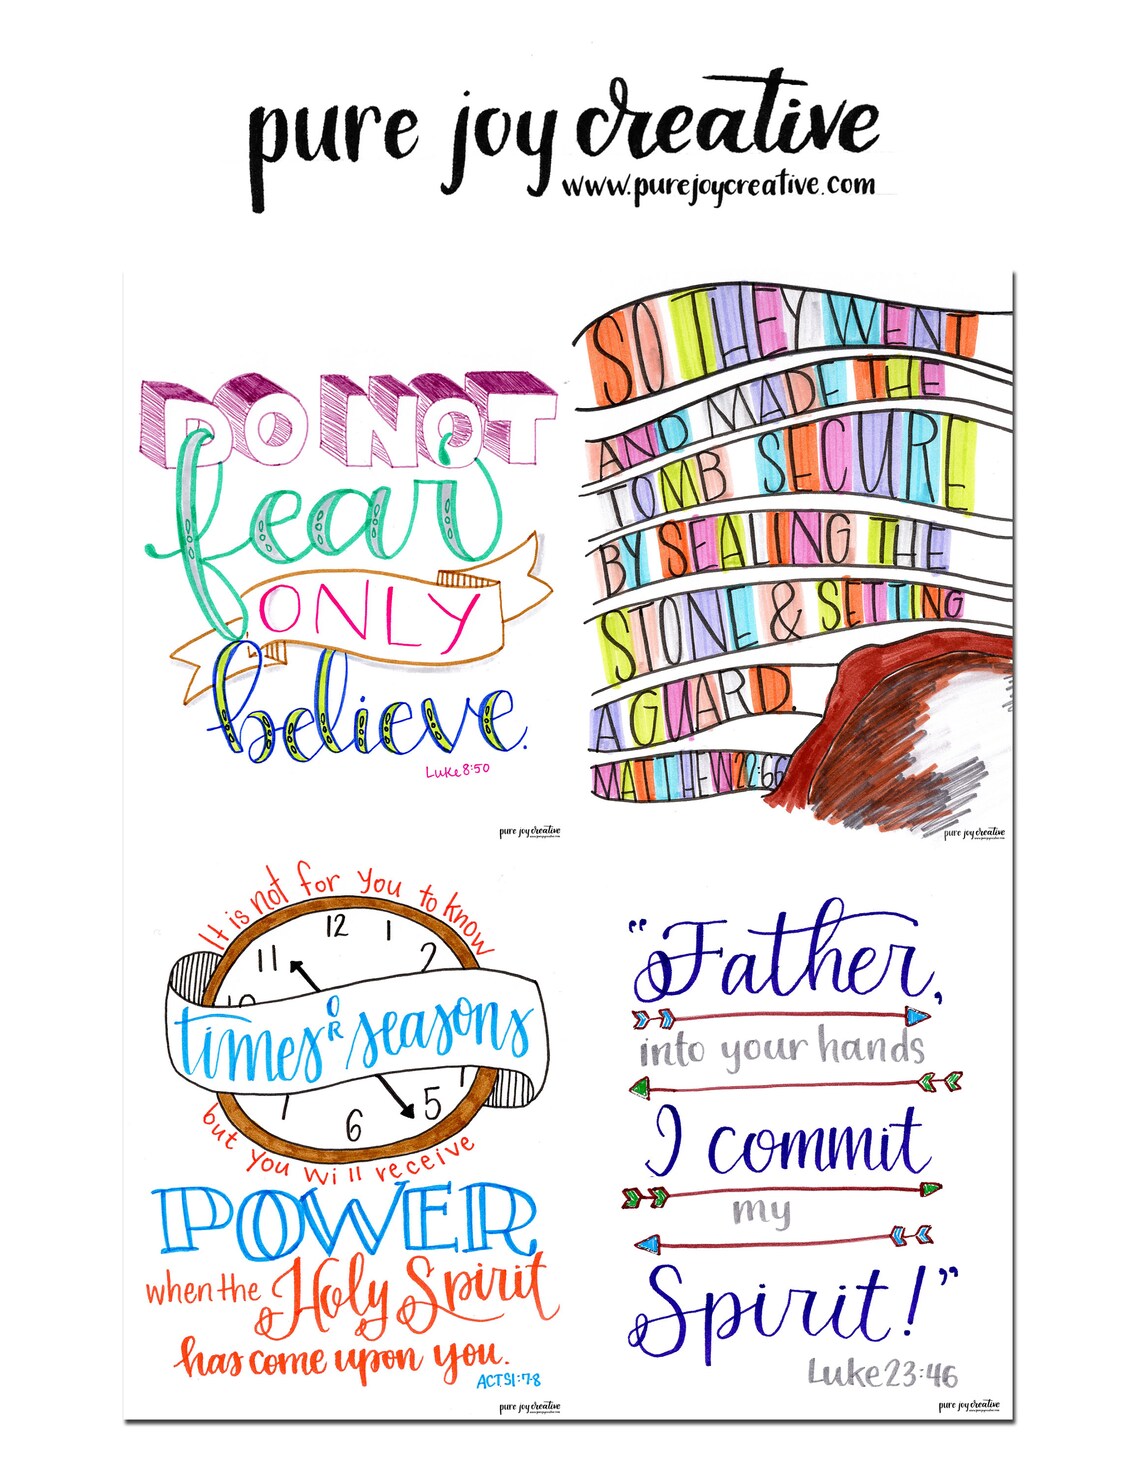 pure joy creative
www.purejoycreative.com
DO NOT
fear
ONLY
believe.
Luke 8:50
pure joy creative
SO THEY WENT
AND MADE THE
TOMB SECURE
BY SEALING THE
STONE & SETTING
A GUARD.
MATTHEW 22:66
pure joy creative
It is not for you to know
12
1
2
11
10
times OR seasons
7
5
6
but you will receive
POWER
when the Holy Spirit
has come upon you.
ACTS 1:7-8
pure joy creative
"Father,
into your hands
I commit
my
Spirit!"
Luke 23:46
pure joy creative